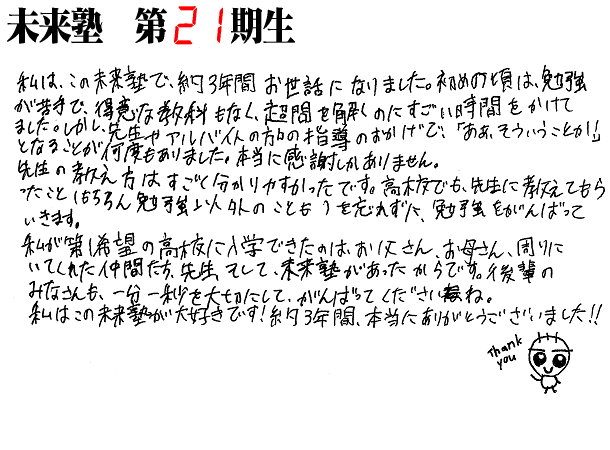 未来塾 第21期生
私は、この未来塾で、約3年間お世話になりました。初めの頃は、勉強
が苦手で、得意な教科もなく、1問を解くのにすごい時間をかけて
ました。しかし、先生やアルバイトの方々の指導のおかげで、「ああ、そういうことか!!」
となることが何度もありました。本当に感謝しかありません。
先生の教え方はすごく分かりやすかったです。高校でも、先生に教えてもら
ったこと(もちろん勉強以外のことも)を忘れずに、勉強をがんばって
いきます。
私が第1希望の高校に入学できたのは、お父さん、お母さん、周りに
いてくれた仲間たち、先生、そして、未来塾があったからです。後輩の
みなさんも、一分一秒を大切にして、がんばってくださいね。
私はこの未来塾が大好きです!約3年間、本当にありがとうございました!!
Thank
you